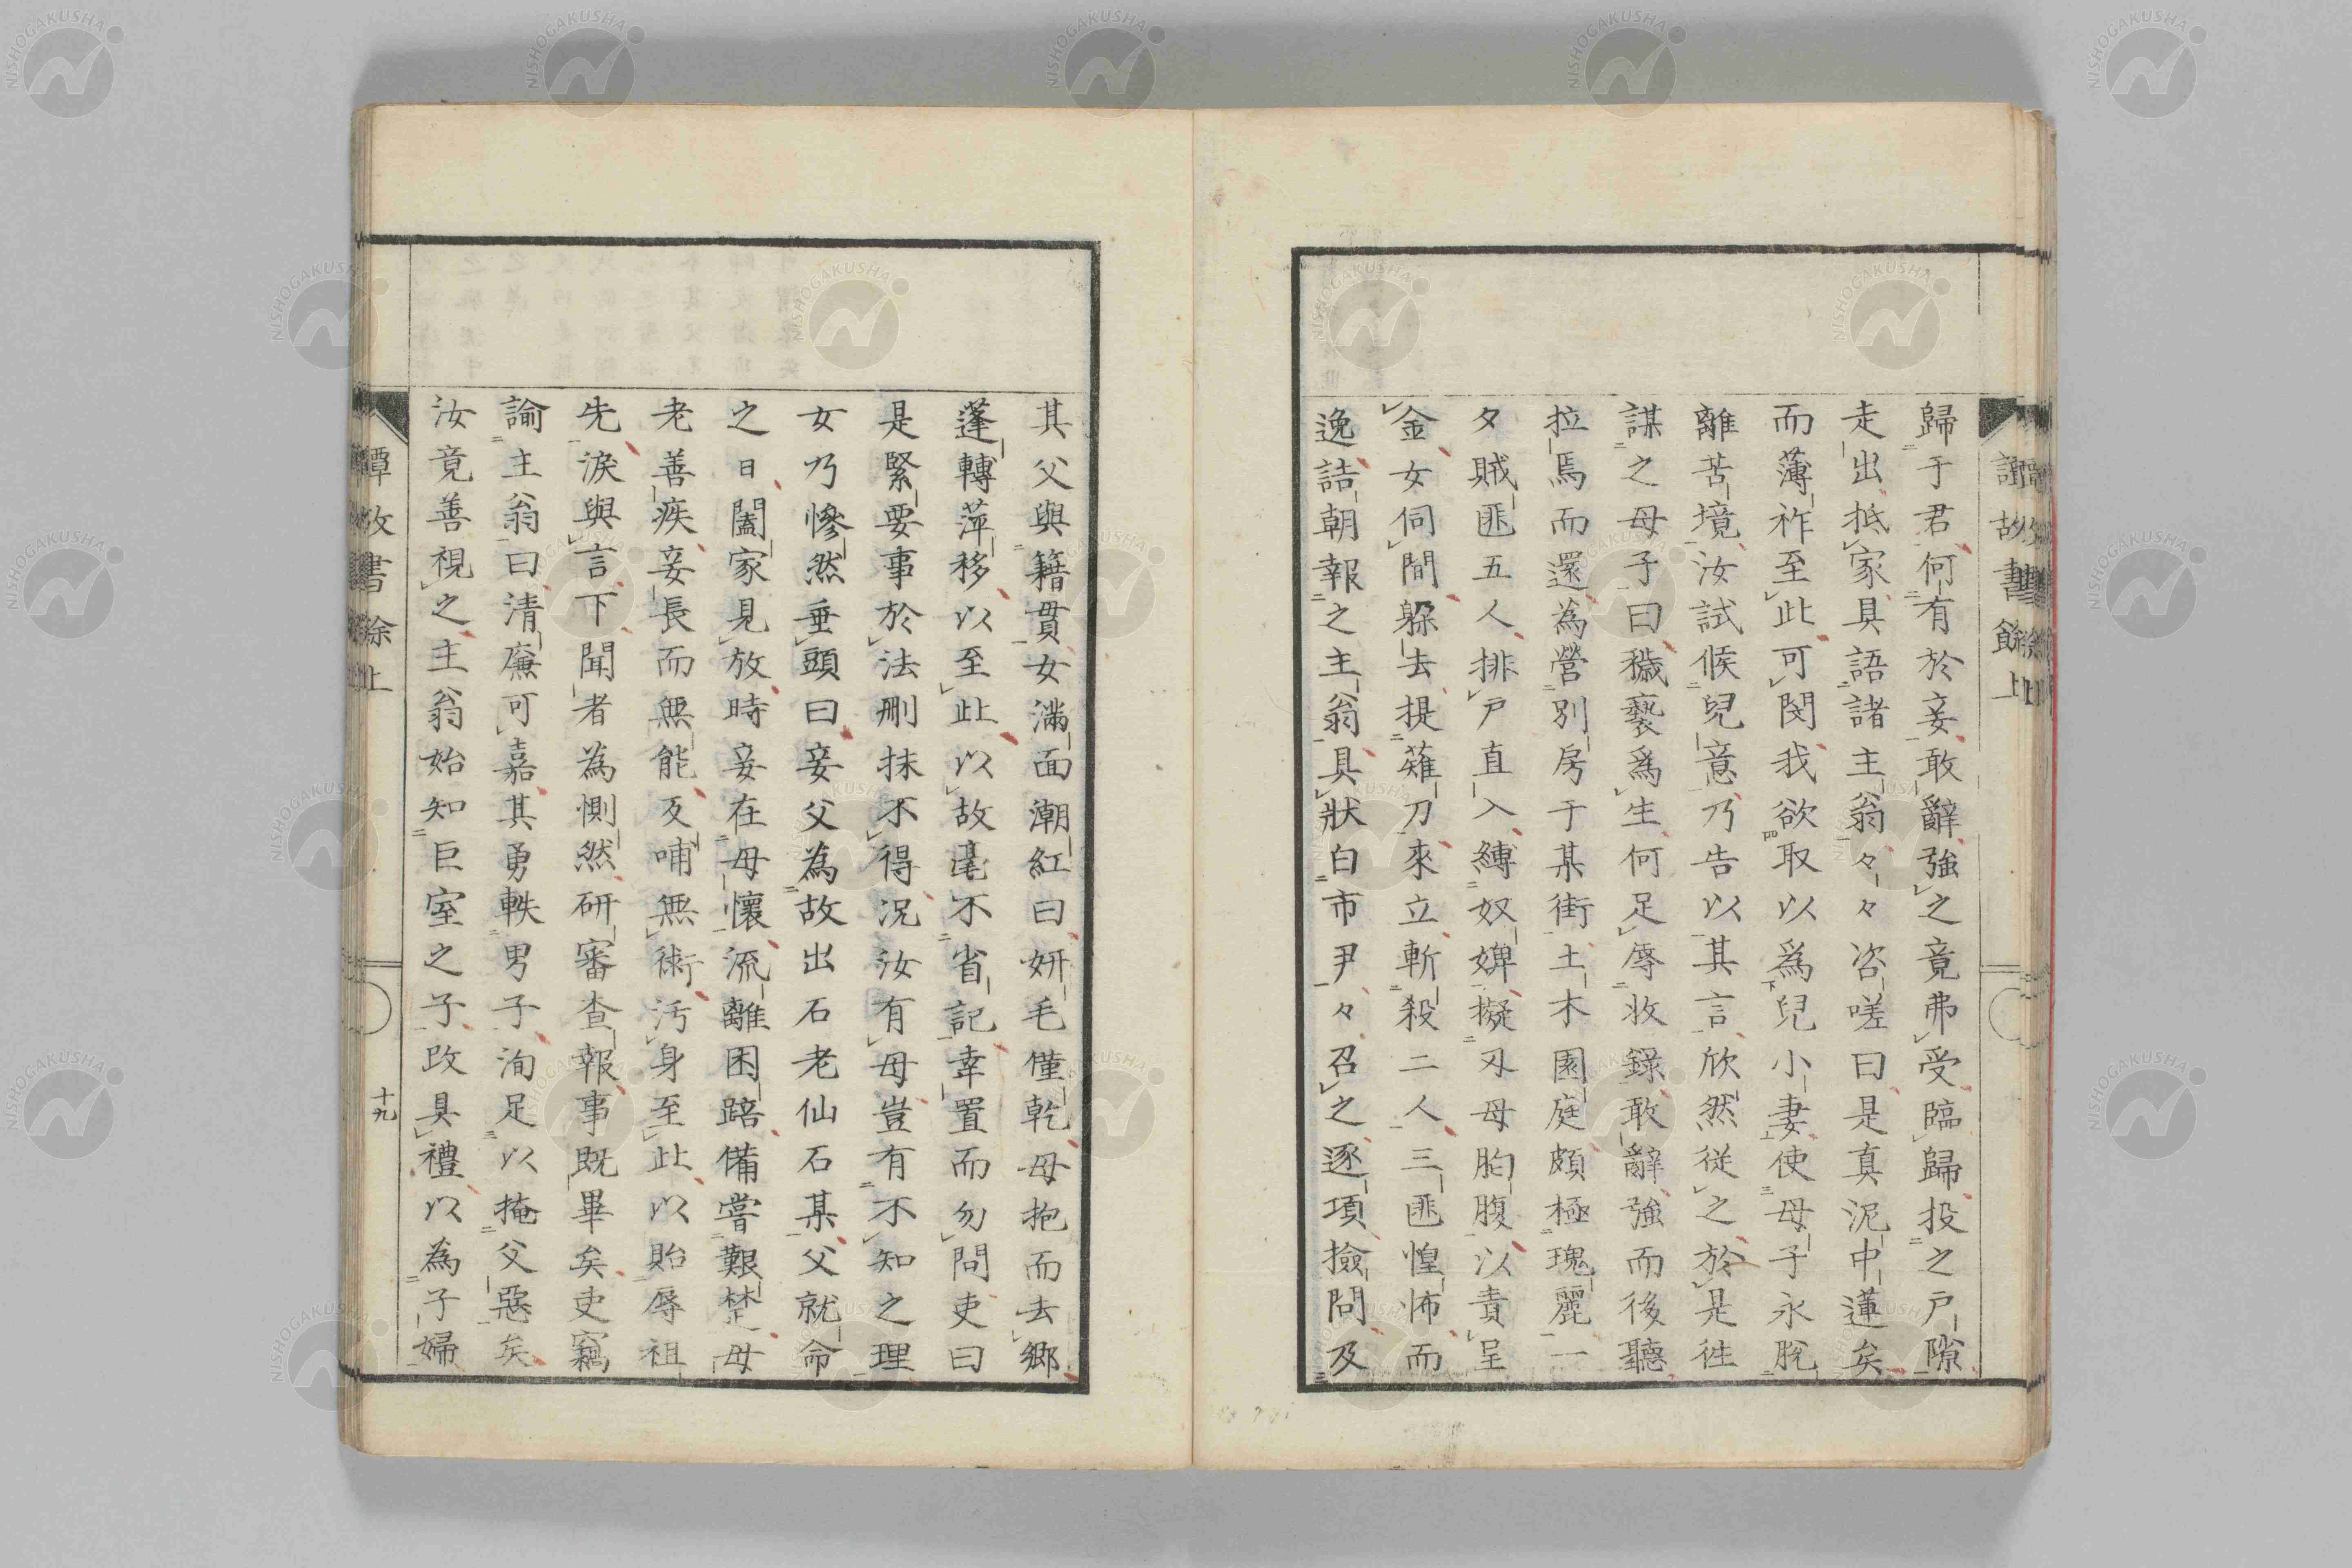 譚故書餘上
歸于君何有於妾敢辭強之竟弗受臨歸投之戸隙
走出抵家具語諸主翁々々咨嗟曰是真泥中蓮矣
而薄祚至此可閔我欲取以爲兒小妻使母子永脫
離苦境汝試候兒意乃告以其言欣然従之於是徃
謀之母子曰穢褻爲生何足辱收錄敢辭強而後聽
拉焉而還為營別房于某街土木園庭頗極瑰麗一
夕賊匪五人排戸直入縛奴婢擬刄母胸腹以責呈
金女伺間躲去提薙刀來立斬殺二人三匪惶怖而
逸詰朝報之主翁具狀白市尹々召之逐項撿問及
其父與籍貫女滿面潮紅曰妍毛僅乾母抱而去鄉
蓬轉萍移以至此以故毫不省記幸置而勿問吏曰
是緊要事於法刪抹不得況汝有母豈有不知之理
女乃慘然垂頭曰妾父為故出石老仙石某父就命
之日闔家見放時妾在母懷流離困踣備嘗艱楚母
老善疾妾長而無能反哺無術汚身至此以貽辱祖
先淚與言下聞者為惻然研審查報事既畢矣吏竊
諭主翁曰清廉可嘉其勇軼男子洵足以掩父惡矣
汝竟善視之主翁始知巨室之子改具禮以為子婦
譚故書餘上
十九
NISHOGAKUSHA